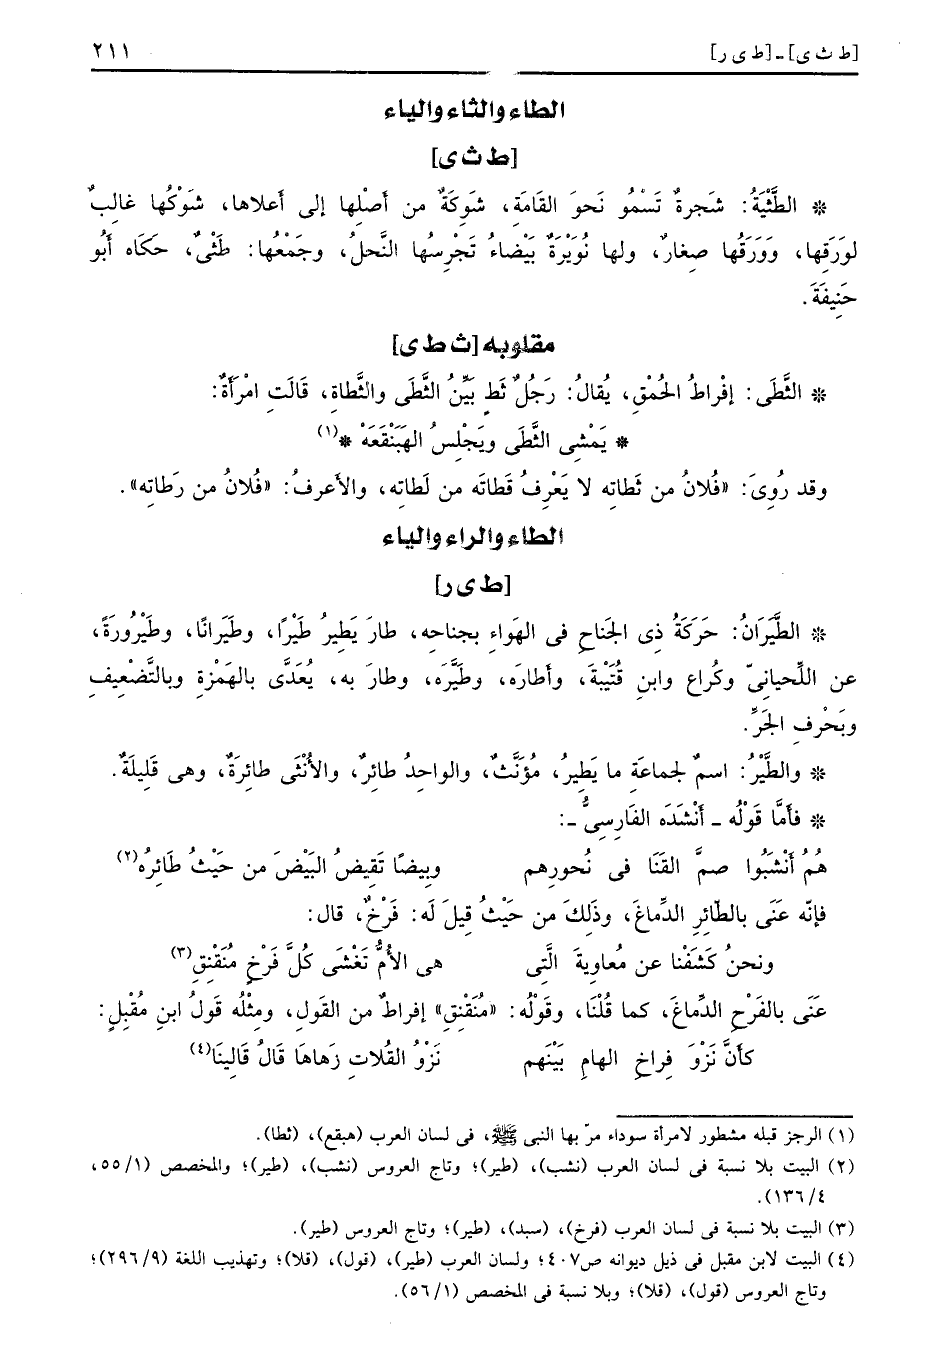 [ط ث ى] ـ [ط ى ر] ٢١١
الطاء والثاء والياء
[ط ث ى]
* الطَّثْيَةُ: شَجرةٌ تَسْمُو نَحوَ القَامَةِ، شَوِكَةٌ من أصْلِها إلى أعلاها، شَوْكُها غالِبٌ
لوَرَقِها، وَوَرَقُها صِغارٌ، ولها نُوَيْرَةٌ بَيْضاءُ تَجْرِسُها النَّحلُ، وجَمْعُها: طَثْىٌ، حكَاه أبُو
حَنِيفَةَ.
مقلوبه [ث ط ى]
* الثَّطَى: إفْراطُ الحُمْقِ، يُقالُ: رَجُلٌ ثَطٍ بَيِّنُ الثَّطَى والثَّطاةِ، قَالَتِ امْرَأَةٌ:
* يَمْشِى الثَّطَى ويَجْلِسُ الهَبَنْقَعَهْ *(١)
وقد رُوِىَ: «فُلانُ من ثَطاتِه لا يَعْرِفُ قَطاتَه من لَطاتِه، والأعرفُ: «فُلانُ من رَطاتِه».
الطاء والراء والياء
[ط ى ر]
* الطَّيَرَانُ: حَرَكَةُ ذى الجَناحِ فى الهَواءِ بجَناحِه، طارَ يَطِيرُ طَيْرًا، وطَيَرانًا، وطَيْرُورَةً،
عن اللِّحيانىّ وكُراع وابنِ قُتَيْبةَ، وأطارَه، وطَيَّرَه، وطارَ به، يُعَدَّى بالهَمْزةِ وبالتَّضْعِيفِ
وبَحْرفِ الجَرِّ.
* والطَّيْرُ: اسمٌ لجماعَةِ ما يَطِيرُ، مُؤَنَّثٌ، والواحِدُ طائِرٌ، والأُنْثَى طائِرَةٌ، وهى قَلِيلَةٌ.
* فأمَّا قَوْلُه ـ أنْشَدَه الفَارِسِىُّ ـ:
هُمُ أنْشَبُوا صمَّ القَنَا فى نُحورِهم وبِيضًا تَقِيضُ البَيْضَ من حَيْثُ طَائِرُه(٢)
فإنّه عَنَى بالطّائِرِ الدِّماغَ، وذَلِكَ من حَيْثُ قِيلَ لَه: فَرْخٌ، قال:
ونحنُ كَشَفْنا عن مُعاوِيةَ الَّتِى هى الأُمُّ تَغْشَى كُلَّ فَرْخٍ مُنَقْنِقِ(٣)
عَنَى بالفَرْحِ الدِّماغَ، كما قُلْنَا، وقَوْلُه: «مُنَقْنِق» إفراطٌ من القَول، ومثْلُه قَولُ ابنِ مُقْبِلٍ:
كأنَّ نَزْوَ فِراخِ الهامِ بَيْنَهم نَزْوُ القُلاتِ زَهاهَا قَالُ قَالِينَا(٤)
(١) الرجز قبله مشطور لامرأة سوداء مرّ بها النبى ﷺ، فى لسان العرب (هبقع)، (ثطا).
(٢) البيت بلا نسبة فى لسان العرب (نشب)، (طير)؛ وتاج العروس (نشب)، (طير)؛ والمخصص (١/ ٥٥،
٤/ ١٣٦).
(٣) البيت بلا نسبة فى لسان العرب (فرخ)، (سبد)، (طير)؛ وتاج العروس (طير).
(٤) البيت لابن مقبل فى ذيل ديوانه ص٤٠٧؛ ولسان العرب (طير)، (قول)، (قلا)؛ وتهذيب اللغة (٩/ ٢٩٦)؛
وتاج العروس (قول)، (قلا)؛ وبلا نسبة فى المخصص (١/ ٥٦).